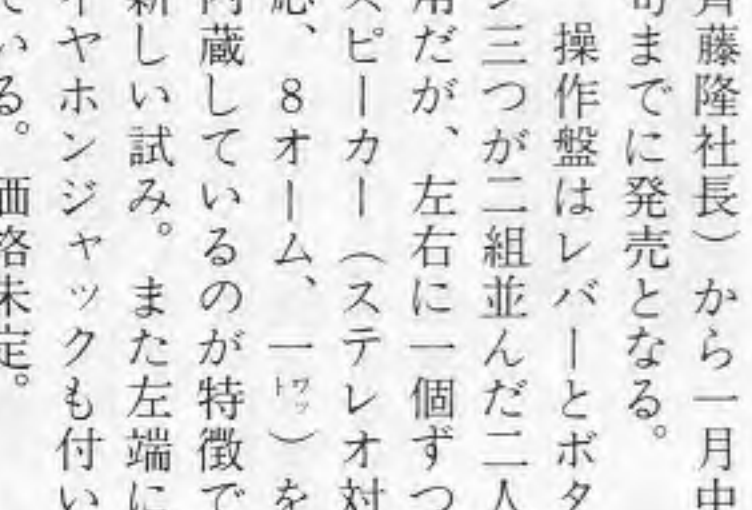 斉藤隆社長）から一月中
旬までに発売となる。
操作盤はレバーとボタ
ン三つが二組並んだ二人
用だが、左右に一個ずつ
スピーカー（ステレオ対
応、8オーム、一ワット）を
内蔵しているのが特徴で
新しい試み。また左端に
イヤホンジャックも付い
ている。価格未定。